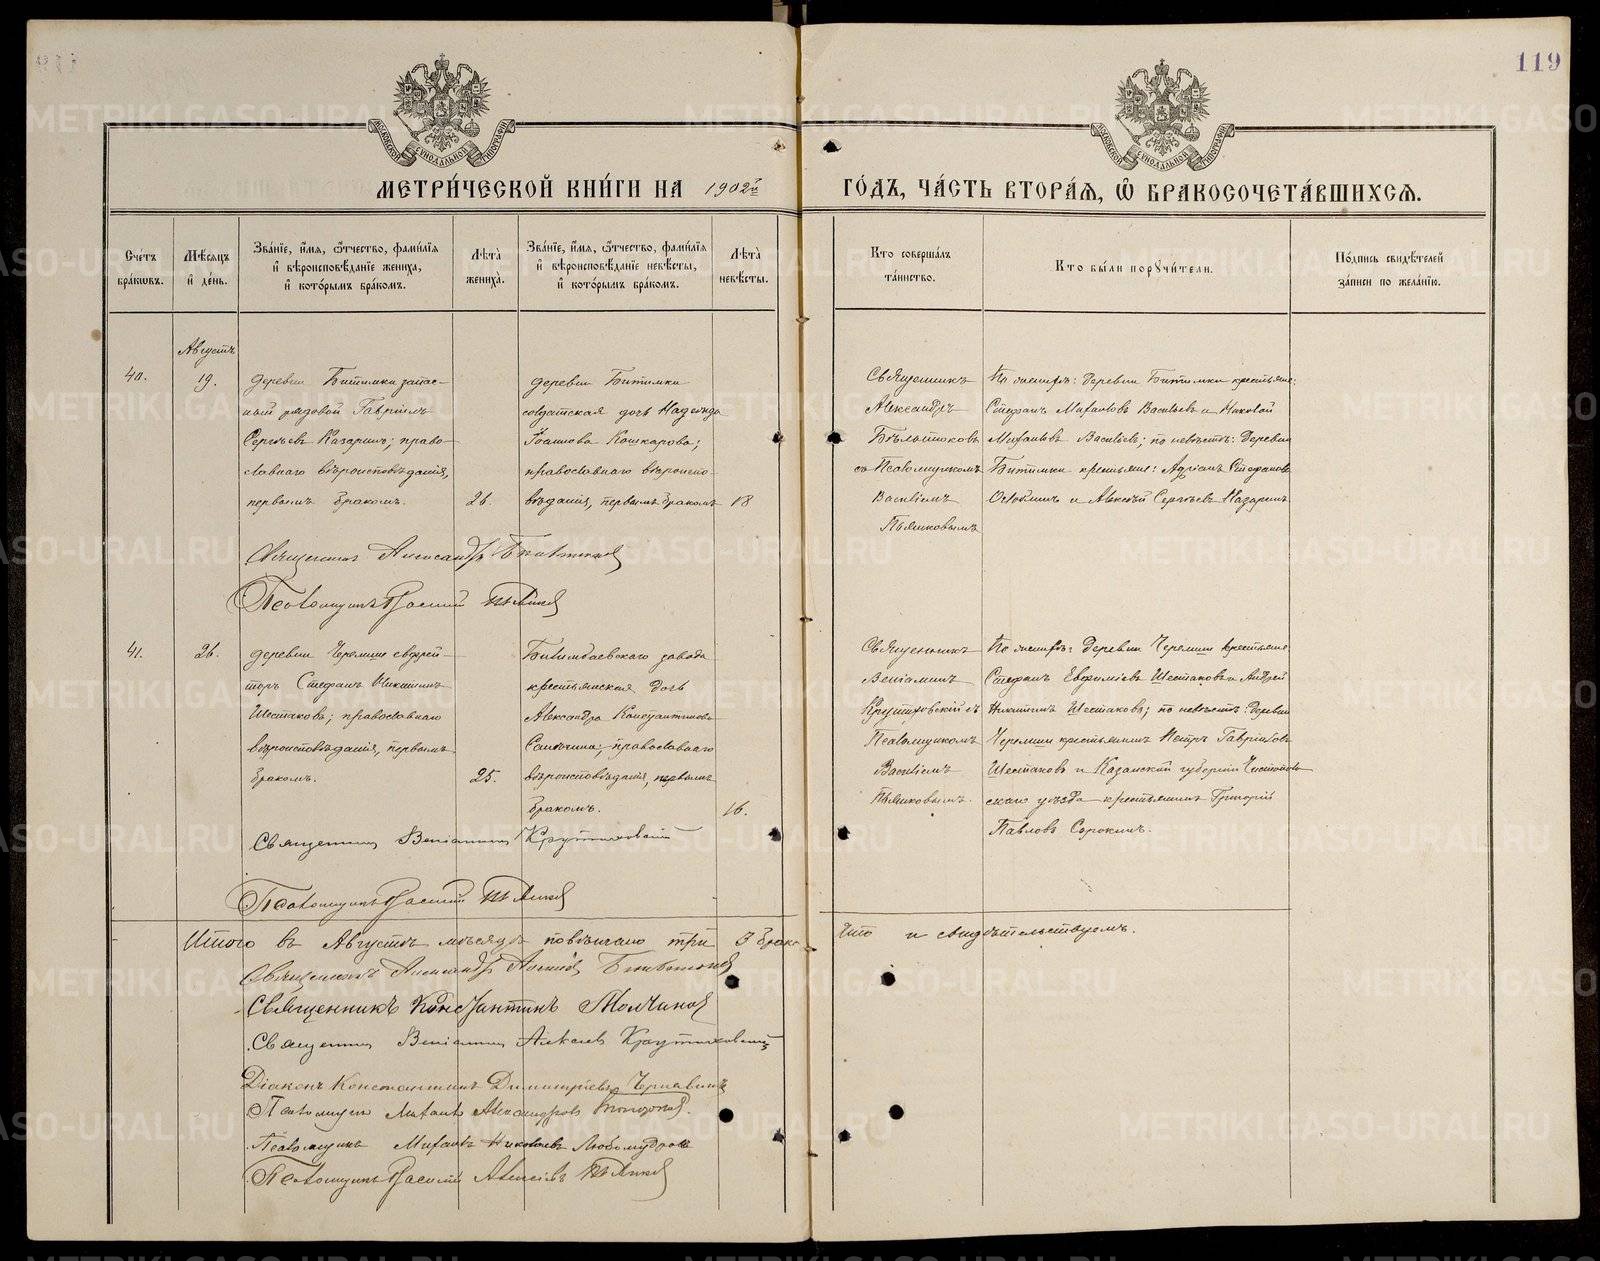 119
МЕТРИ́ЧЕСКОЙ КНИ́ГИ НА 1902й ГО́ДЪ, ЧА́СТЬ ВТОРА́Я, Ѡ҆ БРАКОСОЧЕТА́ВШИХСЯ.
МОСКОВСКОЙ СУНОДАЛЬНОЙ ТИПОГРАФІИ
МОСКОВСКОЙ СУНОДАЛЬНОЙ ТИПОГРАФІИ
Сче́тъ бра́кѡвъ.
Мѣ́сяцъ и҆ де́нь.
Зва́ніе, и҆́мя, ѻ҆́тчество, фами́лія и҆ вѣроисповѣ́даніе жениха̀, и҆ кото́рымъ бра́комъ.
Лѣ́та жениха̀.
Зва́ніе, и҆́мя, ѻ҆́тчество, фами́лія и҆ вѣроисповѣ́даніе невѣ́сты, и҆ кото́рымъ бра́комъ.
Лѣ́та невѣ́сты.
Кто соверша́лъ та́инство.
Кто бы́ли порꙋчи́тели.
По́дпись свидѣ́телей за́писи по жела́нію.
Августъ
40.
19.
деревни Битимки запас-
ный рядовой Гавріилъ
Сергѣевъ Казаринъ; право-
славнаго вѣроисповѣданія,
первымъ бракомъ.
26.
деревни Битимки
солдатская дочь Надежда
Іоаннова Кошкарова;
православнаго вѣроиспо-
вѣданія, первымъ бракомъ
18
Священникъ
Александръ
съ Псаломщикомъ
Василіемъ
Пьянковымъ
По женихѣ: деревни Битимки крестьяне:
Стефанъ Михаиловъ Васильевъ и Николай
Михаиловъ Васильевъ; по невѣстѣ: деревни
Битимки крестьяне: Адріанъ Стефановъ
и Алексѣй Сергѣевъ
Священникъ Александръ
Псаломщикъ Василій Пьянковъ
41.
26.
деревни Черемши ефрей-
торъ Стефанъ Никитинъ
Шестаковъ; православнаго
вѣроисповѣданія, первымъ
бракомъ.
25.
Билимбаевскаго завода
крестьянская дочь
Александра Константинова
православнаго
вѣроисповѣданія, первымъ
бракомъ.
16.
Священникъ
Веніаминъ
Крутиховскій съ
Псаломщикомъ
Василіемъ
Пьянковымъ.
По женихѣ: деревни Черемши крестьяне
Стефанъ Евфиміевъ Шестаковъ и Андрей
Шестаковъ; по невѣстѣ: деревни
Черемши крестьянинъ Петръ Гавріиловъ
Шестаковъ и Казанской губерніи Чистополь-
скаго уѣзда крестьянинъ Григорій
Павловъ Сорокинъ.
Священникъ Веніаминъ Крутиховскій
Псаломщикъ Василій Пьянковъ
Итого въ Августѣ мѣсяцѣ повѣнчано три 3 брака Что и свидѣтельствуемъ.
Священникъ Александръ
Священникъ Константинъ Молчановъ
Священникъ Веніаминъ Алексѣевъ Крутиховскій
Діаконъ Константинъ Димитріевъ Чернавинъ
Псаломщикъ Михаилъ Александровъ
Псаломщикъ Михаилъ Николаевъ Любомудровъ
Псаломщикъ Василій Алексѣевъ Пьянковъ
METRIKI.GASO-URAL.RU